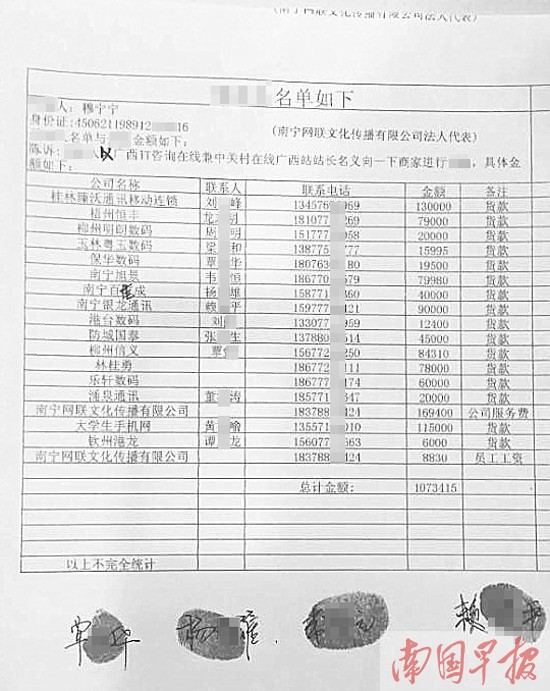 (南宁网联文化传播有限公司法人代表)
名单如下
人: 穆宁宁
身份证:450621198912 16
(南宁网联文化传播有限公司法人代表)
人名单与 金额如下:
陈诉: 人以广西IT咨询在线兼中关村在线广西站站长名义向一下商家进行 , 具体金
额如下:
公司名称 联系人 联系电话 金额 备注
桂林臻沃通讯移动连锁 刘 峰 13457 969 130000 货款
梧州恒丰 龙 明 18107 268 79000 货款
柳州明朗数码 周 明 15177 058 20000 货款
玉林粤玉数码 梁 和 138775 777 15995 货款
保华数码 覃 华 180763 180 19500 货款
南宁旭昊 韦 恒 186770 579 79980 货款
南宁百佳成 杨 雄 158771 360 40000 货款
南宁银龙通讯 赖 平 159777 421 90000 货款
港台数码 刘 133077 959 12400 货款
防城国泰 张 生 137880 514 45000 货款
柳州信义 覃 156772 250 84310 货款
林桂勇 186772 111 78000 货款
乐轩数码 186777 174 60000 货款
涌泉通讯 董 涛 185771 347 20000 货款
南宁网联文化传播有限公司 183788 424 169400 公司服务费
大学生手机网 黄 喻 135571 010 115000 货款
钦州港龙 谭 龙 156077 563 6000 货款
南宁网联文化传播有限公司 183788 424 8830 员工工资
总计金额: 1073415
以上不完全统计
覃 华 杨 雄 赖 平
南国早报